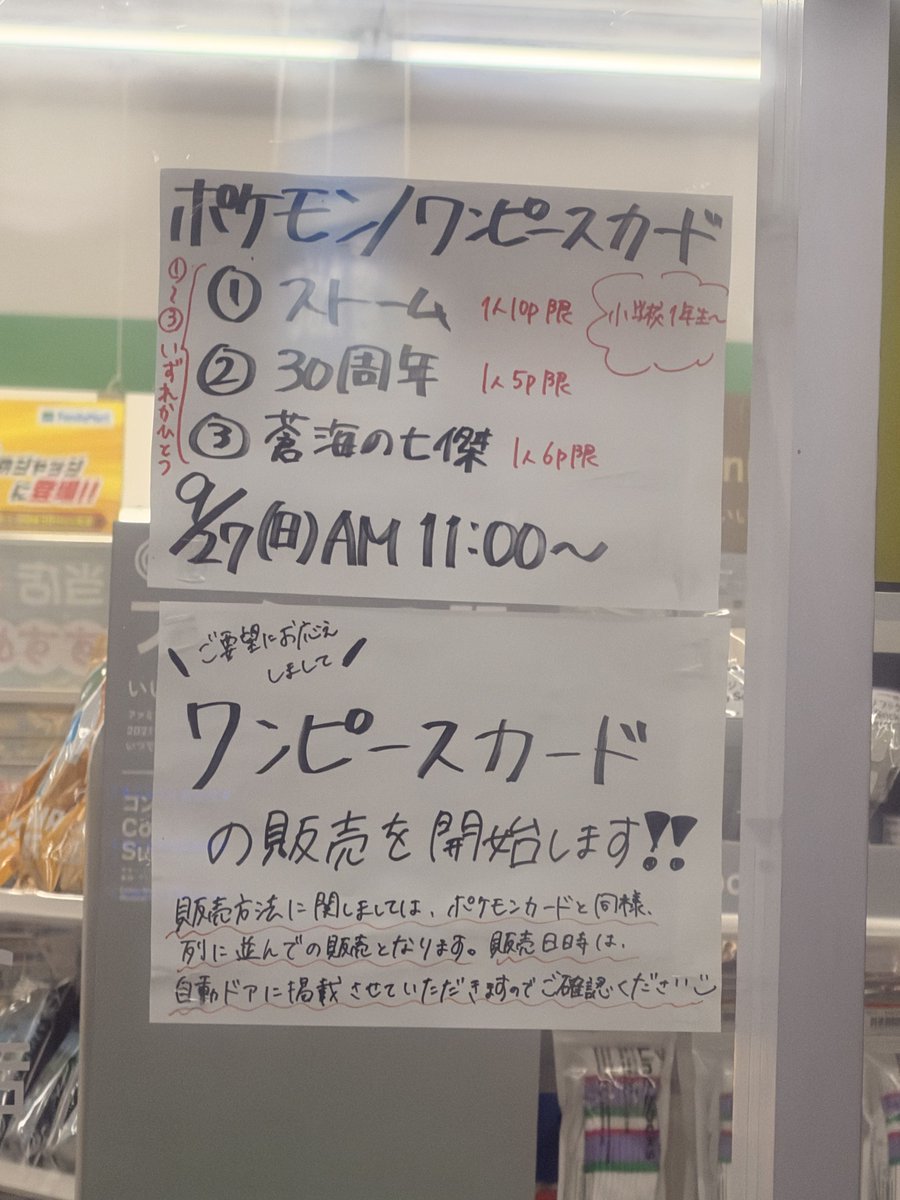 ポケモン/ワンピースカード
①～③いずれかひとつ
① ストーム 1人10p限
小学校1年生～
② 30周年 1人5p限
③ 蒼海の七傑 1人6p限
9/27(日)AM 11:00～
\ご要望にお応え
しまして/
ワンピースカード
の販売を開始します!!
販売方法に関しましては、ポケモンカードと同様、
列に並んでの販売となります。販売日時は、
自動ドアに掲載させていただきますのでご確認ください
FamilyMart
のジャッジ
に登場!!
当店